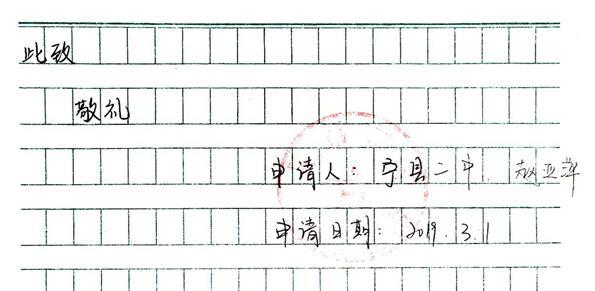 此致
敬礼
申请人：宁县二中. 赵亚萍
申请日期：2019.3.1